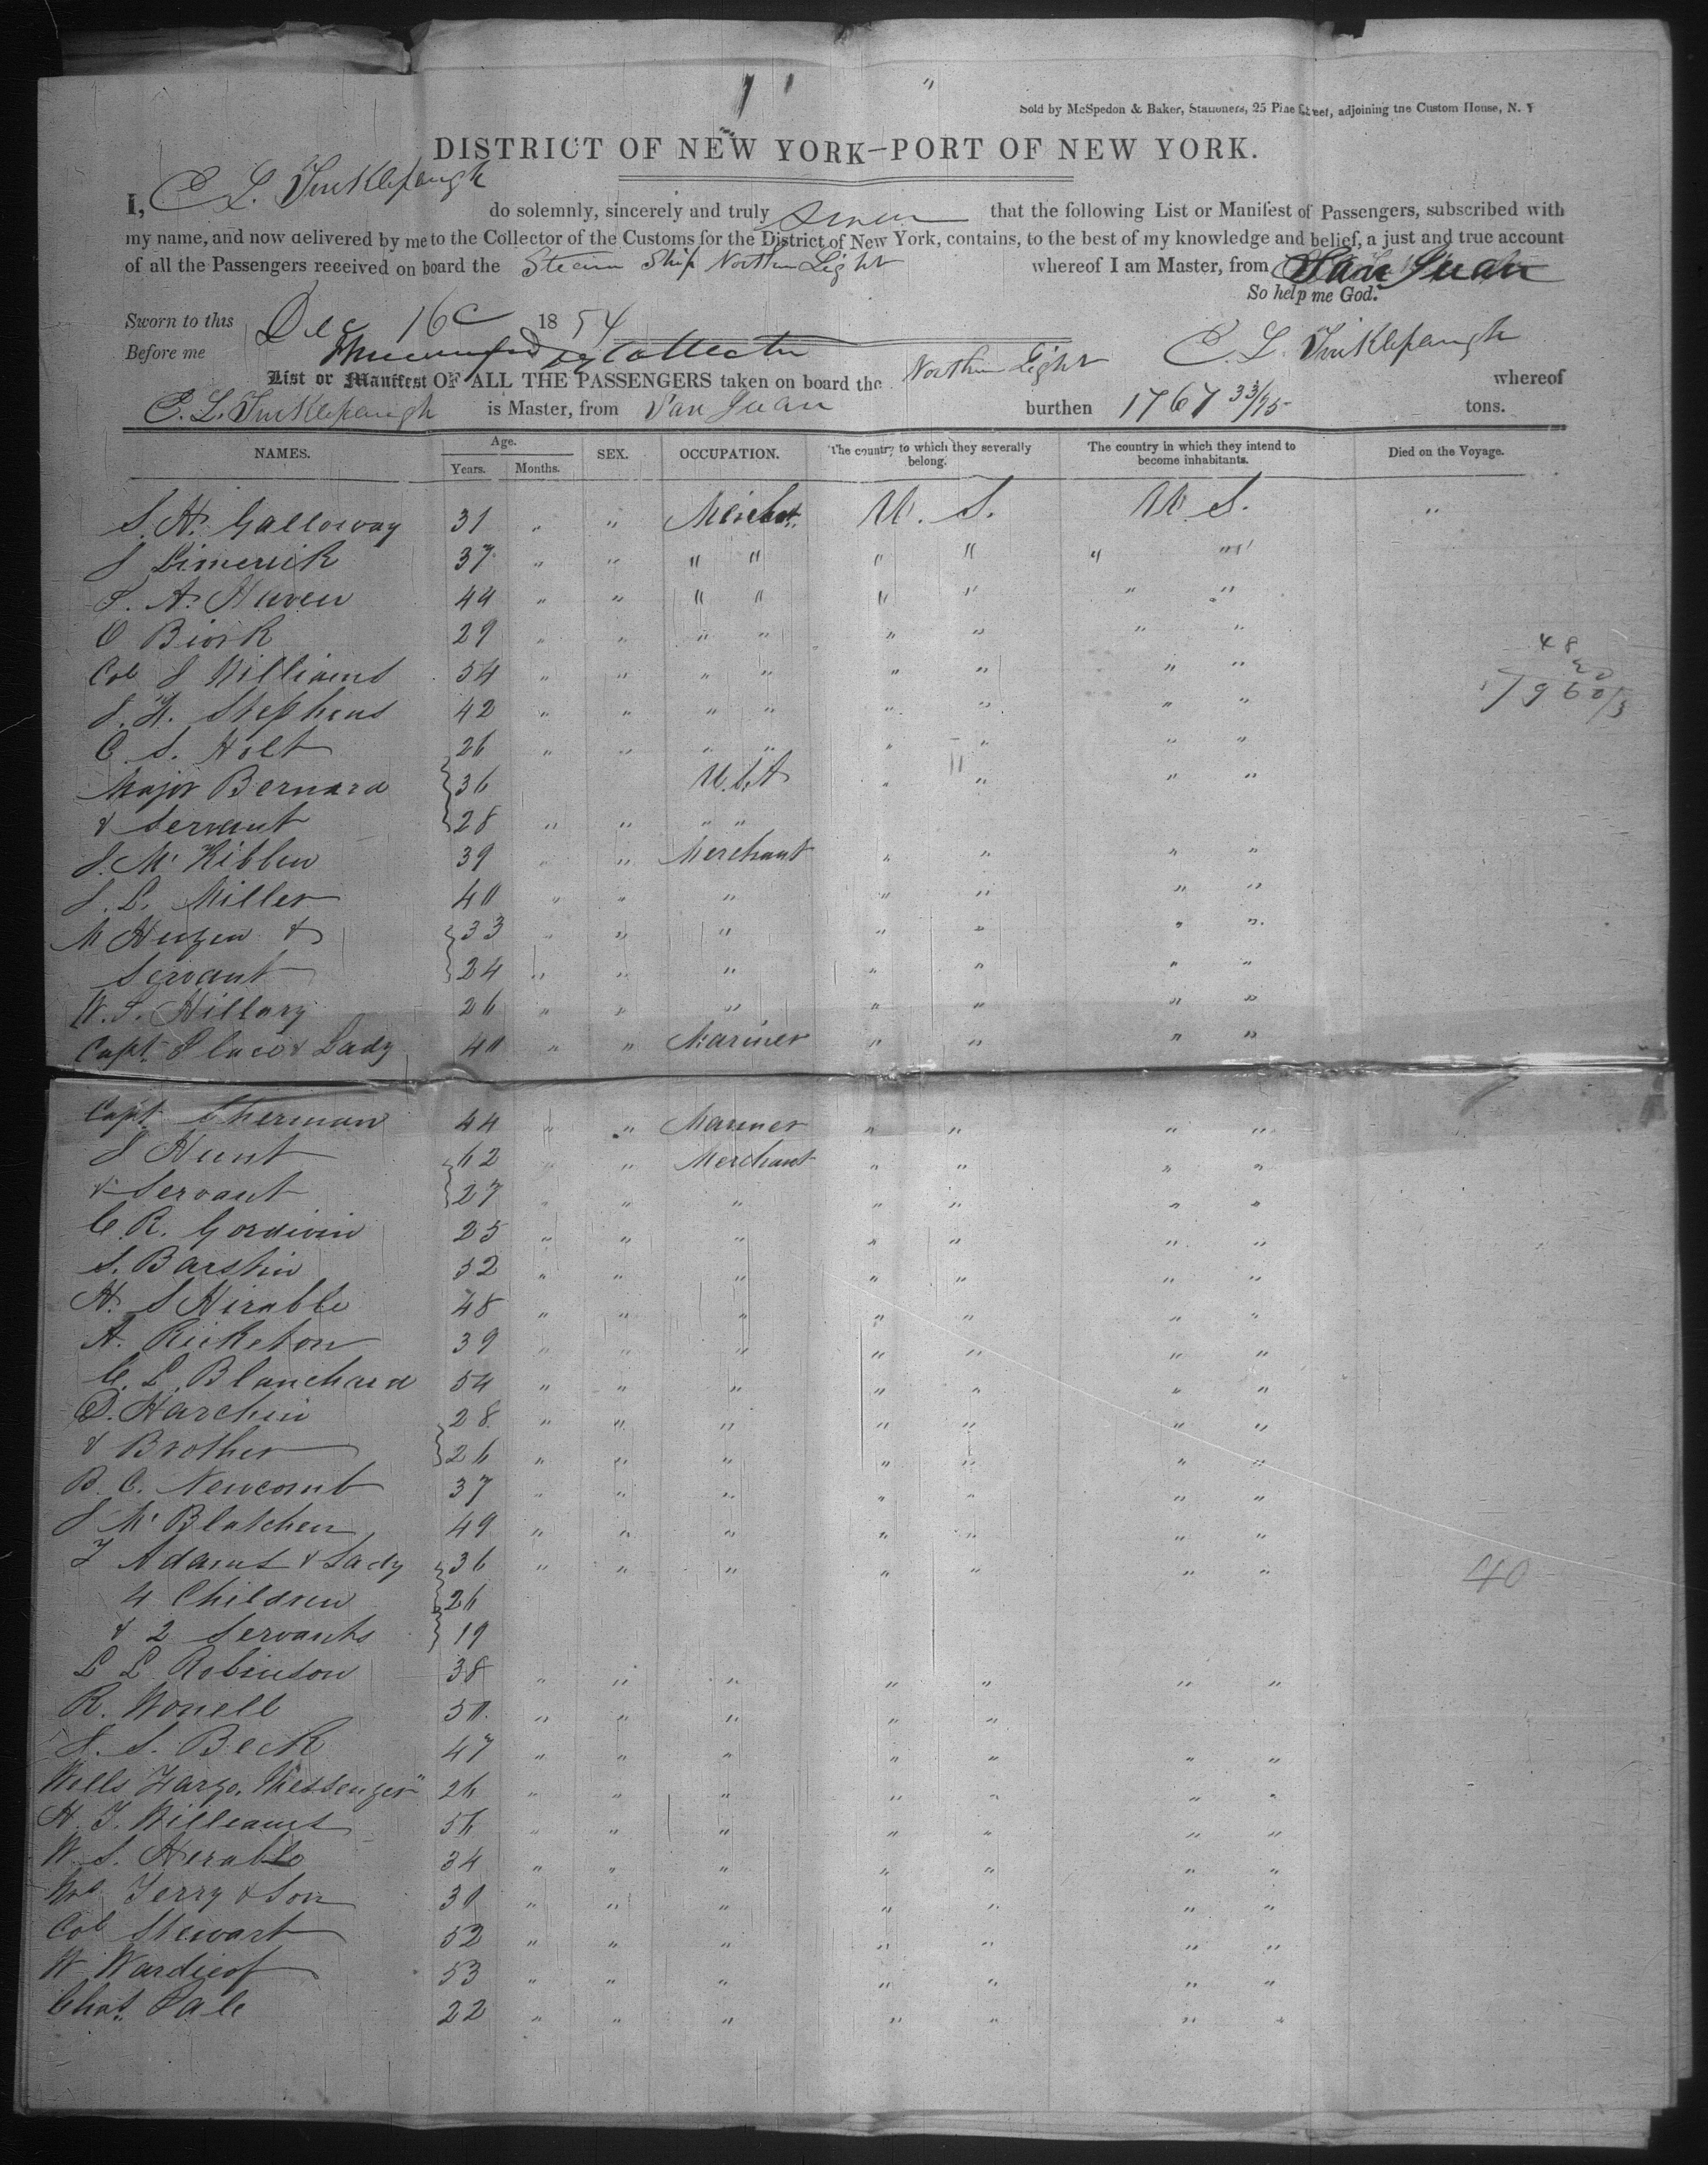 Sold by McSpedon & Baker, Stationers, 25 Pine Street, adjoining the Custom House, N. Y
DISTRICT OF NEW YORK—PORT OF NEW YORK.
I, E L. Tinklepaugh do solemnly, sincerely and truly swear that the following List or Manifest of Passengers, subscribed with
my name, and now delivered by me to the Collector of the Customs for the District of New York, contains, to the best of my knowledge and belief, a just and true account
of all the Passengers received on board the Steam Ship Northern Light whereof I am Master, from San Juan
So help me God.
Sworn to this Dec 16 1854
Before me Collector E. L. Tinklepaugh
List or Manifest OF ALL THE PASSENGERS taken on board the Northern Light whereof
E. L. Tinklepaugh is Master, from San Juan burthen 1767 33/95 tons.
NAMES. Age. Years. Months. SEX. OCCUPATION. The country to which they severally belong. The country in which they intend to become inhabitants. Died on the Voyage.
S. H. Galloway 31 " " Merchat. U. S. U. S. "
J Limerick 37 " " " " " " " "
S. A. Haven 44 " " " " " " " "
29 " " " " " " " "
Col J Williams 54 " " " " " " " "
48
20
960/3
J. H. Stephens 42 " " " " " " " "
C. S. Holt 26 " " " " " " " "
Major Bernard 36 U.S.A " " " "
& Servant 28 " " " "
J. McKibben 39 " " Merchant " " " "
J. L. Miller 40 " " " " " " "
M & 33 " " " " " " "
Servant 24 " " " " " " "
W. S. Hillary 26 " " " " " " "
Capt. & Lady 40 " " Mariner " " " "
Capt. Sherman 44 " " Mariner " " " "
J Hunt 62 " " Merchant " " " "
& Servant 27 " " " " " " "
C. R. 25 " " " " " " "
S. 52 " " " " " " "
H. S 48 " " " " " " "
A. Ricketon 39 " " " " " " "
C. L. Blanchard 54 " " " " " " "
28 " " " " " " "
& Brother 26 " " " " " " "
B. C. Newcomb 37 " " " " " " "
J McBlatchen 49 " " " " " " "
F Adams & Lady 36 " " " " " " "
40
4 Children 26
& 2 Servants 19
L L Robinson 38 " " " " " " "
R. 50 " " " " "
J. S. Beck 47 " " " " " " "
Wells Fargo, Messenger" 26 " " " " " " "
H. F. Williams 56 " " " " " " "
W. S. 34 " " " " " " "
Terry & Son 30 " " " " " " "
Col Stewart 52 " " " " " " "
W 53 " " " " " " "
Chas. 22 " " " " " " "